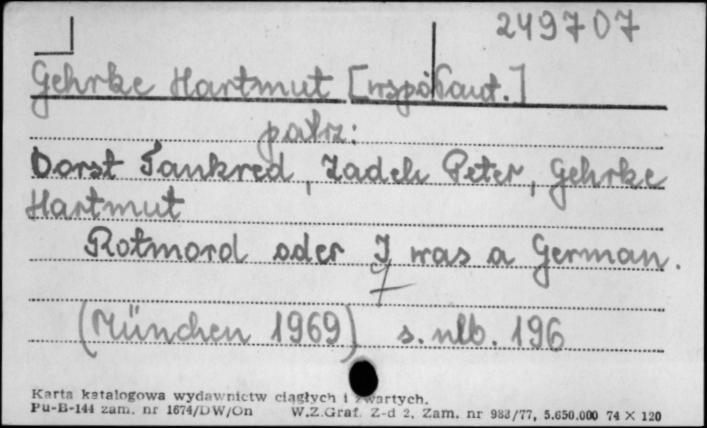 249707
Gehrke Hartmut [współaut.]
patrz:
Dorst Tankred, Zadek Peter, Gehrke
Hartmut
Rotmord oder I was a German.
(München 1969) s. nlb. 196
Karta katalogowa wydawnictw ciągłych i zwartych.
Pu-B-144 zam. nr 1674/DW/On W.Z.Graf. Z-d 2, Zam. nr 983/77, 5.650.000 74 X 120